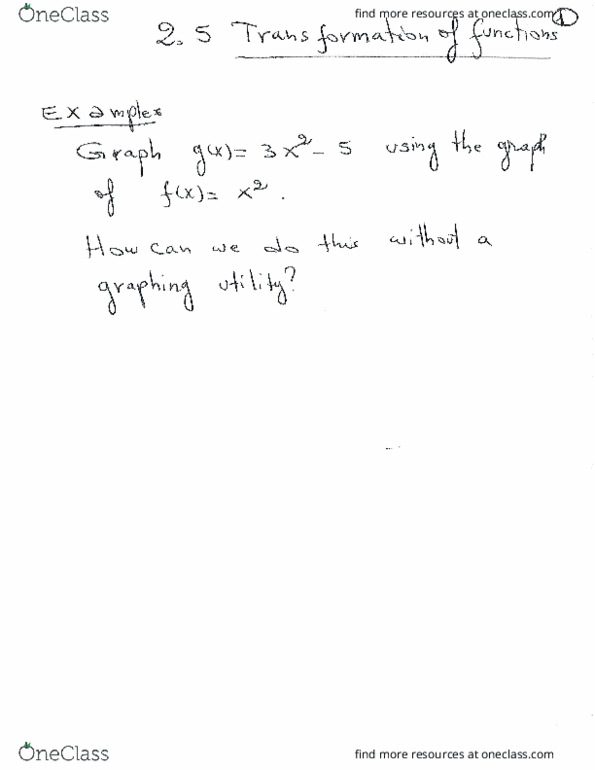 OneClass
find more resources at oneclass.com
1
2.5 Transformation of functions
Examples
Graph g(x) = 3x² - 5 using the graph
of f(x) = x².
How can we do this without a
graphing utility?
OneClass
find more resources at oneclass.com